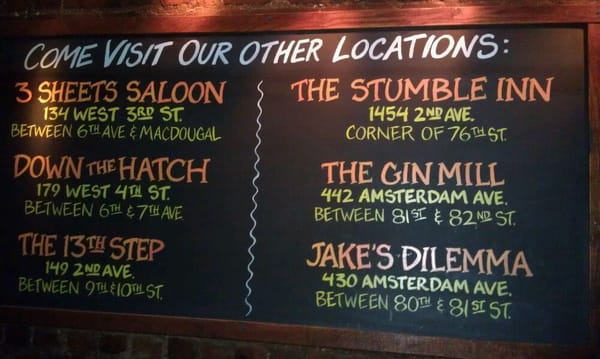 COME VISIT OUR OTHER LOCATIONS:
3 SHEETS SALOON
134 WEST 3RD ST.
BETWEEN 6TH AVE & MACDOUGAL
DOWN THE HATCH
179 WEST 4TH ST.
BETWEEN 6TH & 7TH AVE
THE 13TH STEP
149 2ND AVE.
BETWEEN 9TH & 10TH ST.
THE STUMBLE INN
1454 2ND AVE.
CORNER OF 76TH ST.
THE GIN MILL
442 AMSTERDAM AVE.
BETWEEN 81ST & 82ND ST.
JAKE'S DILEMMA
430 AMSTERDAM AVE.
BETWEEN 80TH & 81ST ST.